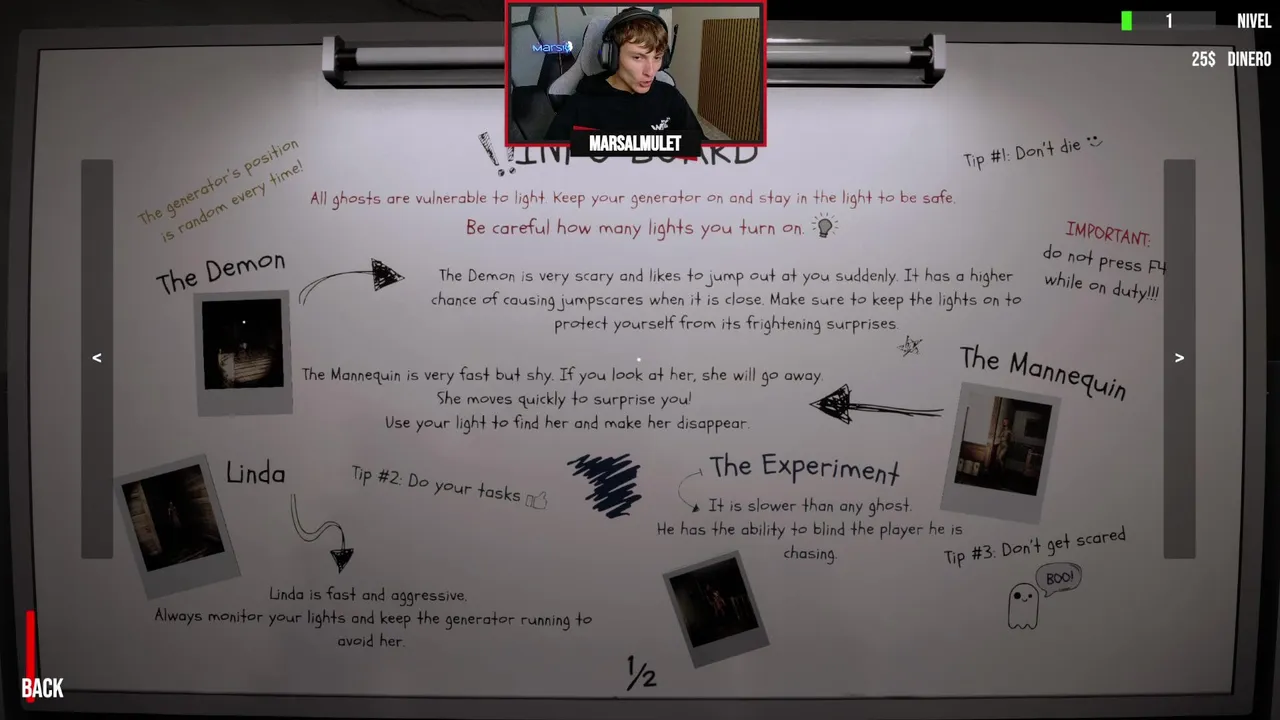 1 NIVEL
25$ DINERO
Marsk
MARSALMULET
!! INFO BOARD
Tip #1: Don't die
The generator's position
is random every time!
All ghosts are vulnerable to light. Keep your generator on and stay in the light to be safe.
Be careful how many lights you turn on.
IMPORTANT:
do not press F4
while on duty!!!
The Demon
The Demon is very scary and likes to jump out at you suddenly. It has a higher
chance of causing jumpscares when it is close. Make sure to keep the lights on to
protect yourself from its frightening surprises.
<
>
The Mannequin
The Mannequin is very fast but shy. If you look at her, she will go away.
She moves quickly to surprise you!
Use your light to find her and make her disappear.
Linda
Tip #2: Do your tasks
The Experiment
It is slower than any ghost.
He has the ability to blind the player he is
chasing.
Tip #3: Don't get scared
BOO!
Linda is fast and aggressive.
Always monitor your lights and keep the generator running to
avoid her.
1/2
BACK